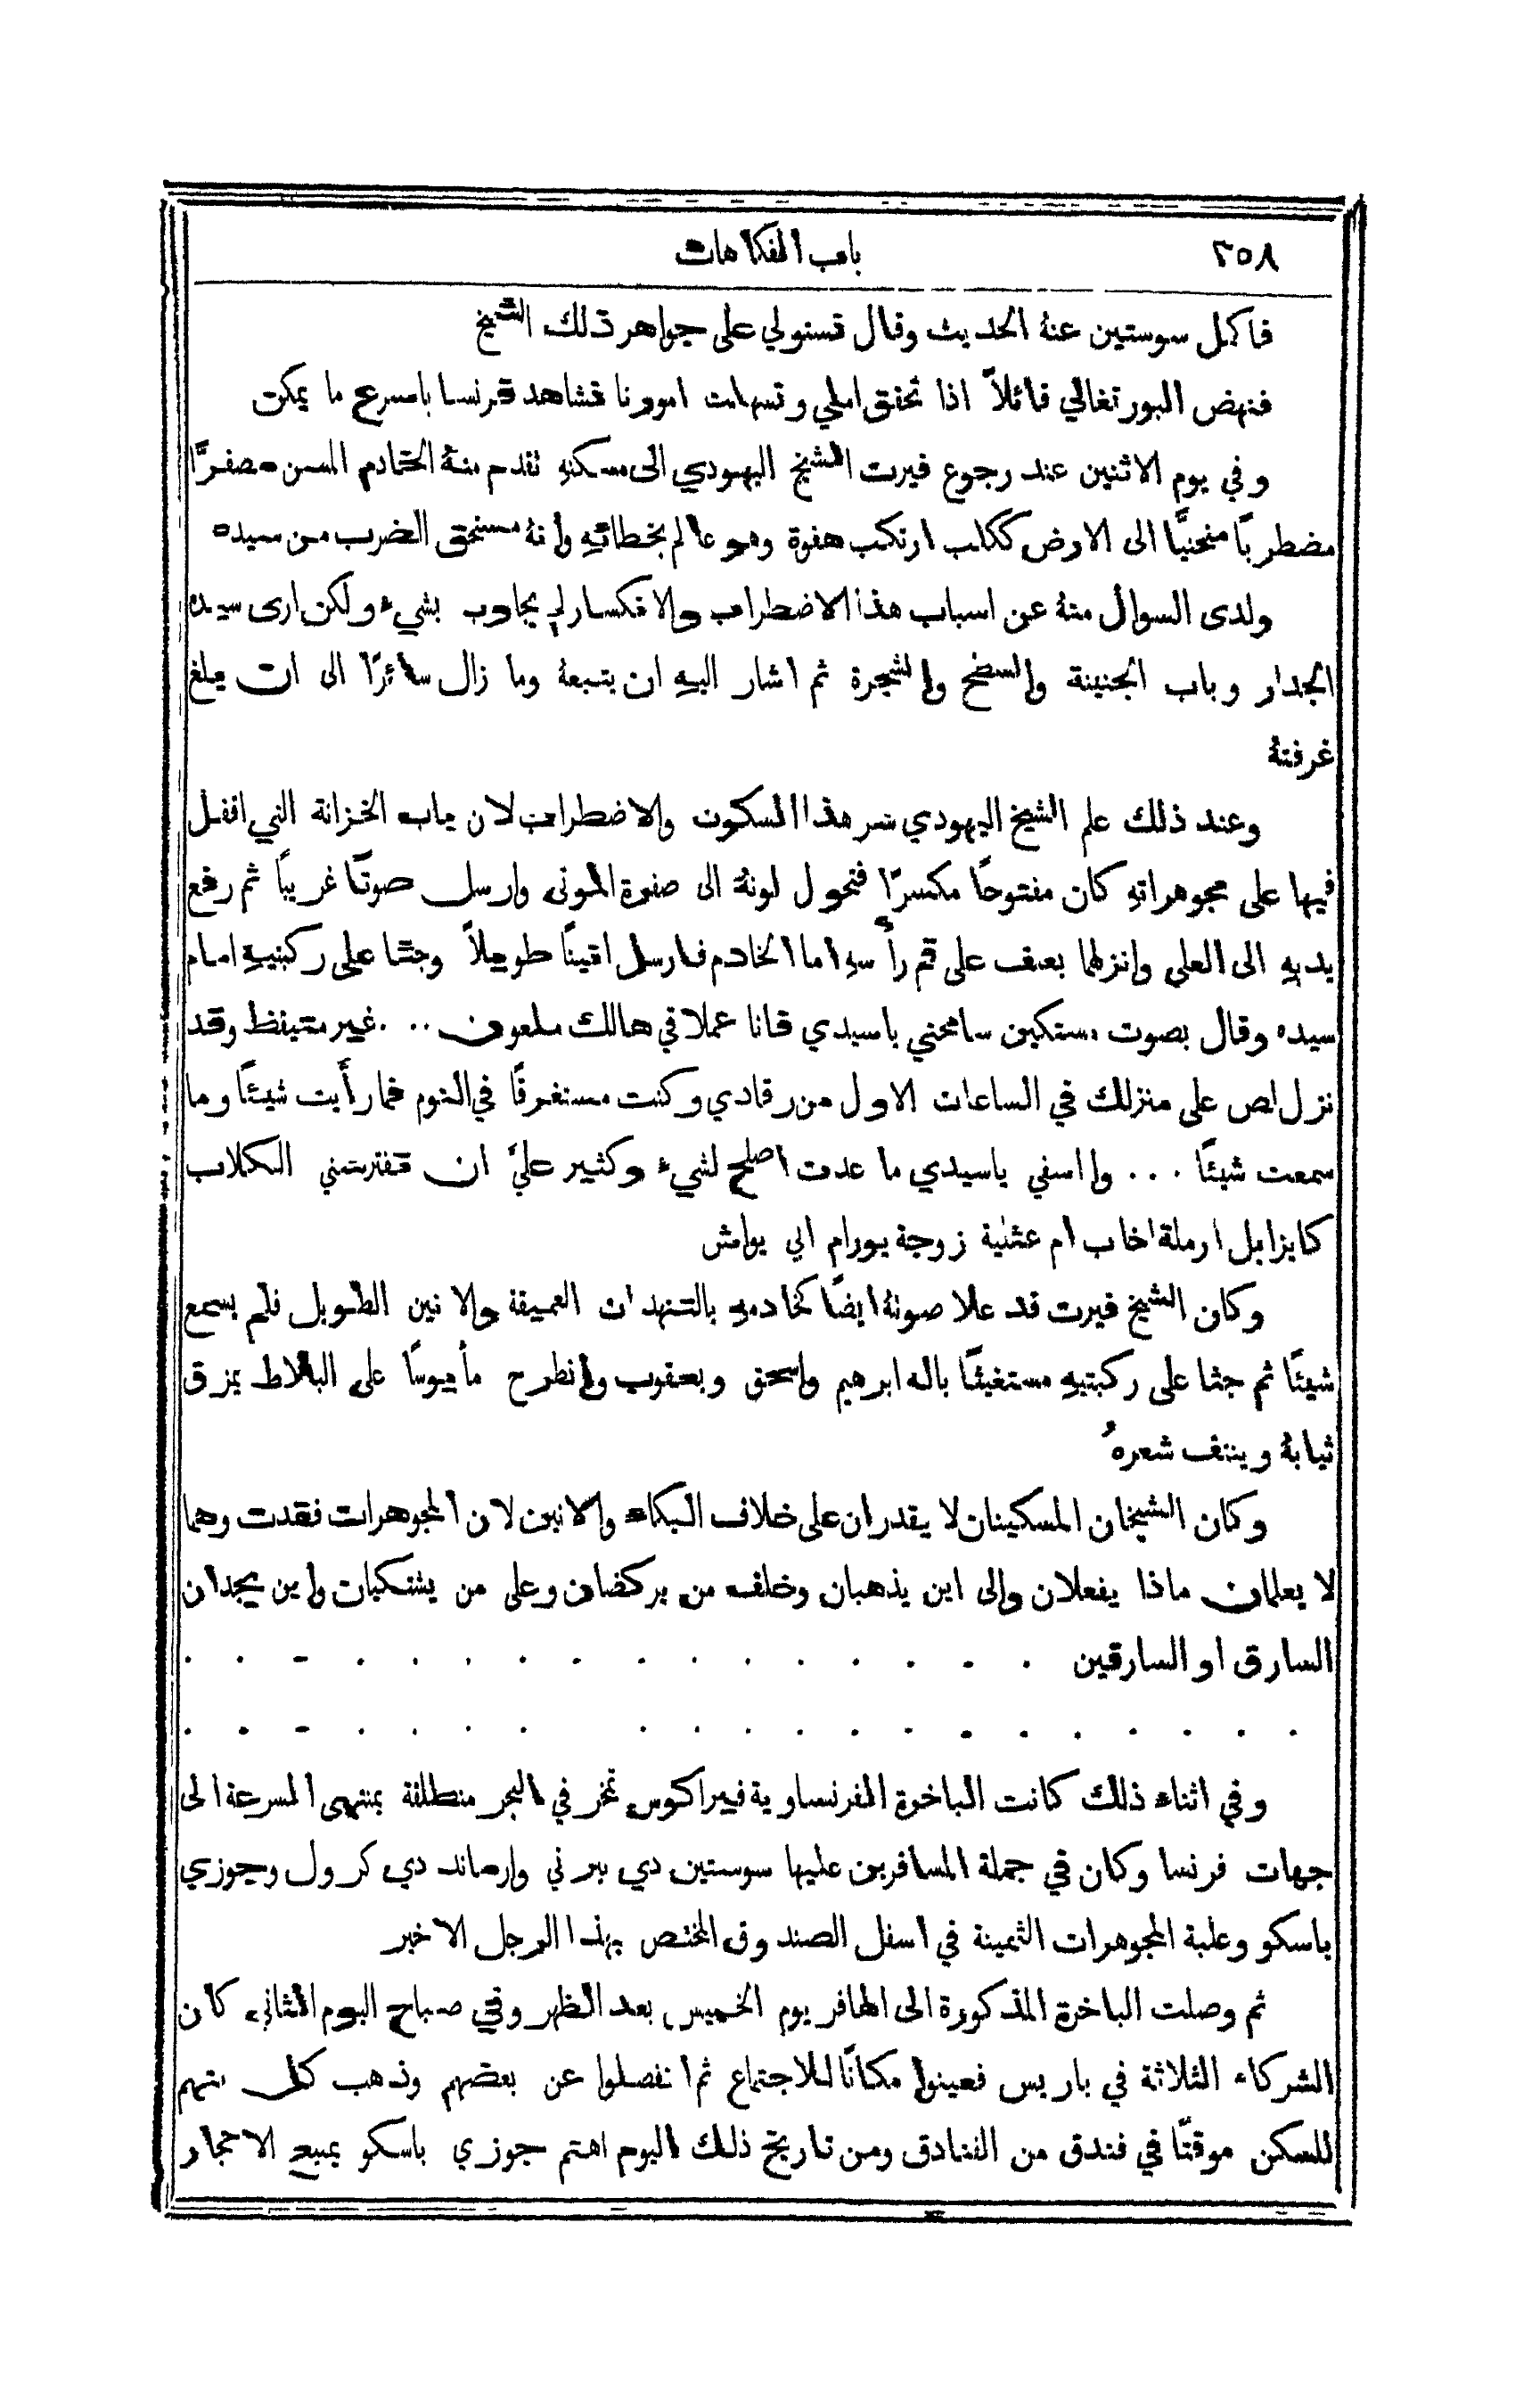 ٣٥٨ باب الفكاهات
فاكمل سوستين عنهُ الحديث وقال تستولي على جواهر ذلك الشيخ
فنهض البورتغالي قائلاً اذا تحقق املي وتسهلت امورنا فشاهد فرنسا باسرع ما يمكن
وفي يوم الاثنين عند رجوع فيرت الشيخ اليهودي الى مسكنهِ تقدم منهُ الخادم المسن مصفرًّا
مضطربًا منحنيًّا الى الارض ككلب ارتكب هفوة وهو عالم بخطائهِ وانهُ مستحق الضرب من سيده
ولدى السوال منهُ عن اسباب هذا الاضطراب والانكسار لم يجاوب بشيءٍ ولكن ارى سيده
الجدار وباب الجنينة والسطح والشجرة ثم اشار اليهِ ان يتبعهُ وما زال سائرًا الى ان بلغ
غرفتهُ
وعند ذلك علم الشيخ اليهودي سر هذا السكوت والاضطراب لان باب الخزانة التي اقفل
فيها على مجوهراتهِ كان مفتوحًا مكسرًا فتحول لونهُ الى صفرة الموتى وارسل صوتًا غريبًا ثم رفع
يديهِ الى العلى وانزلهما بعنف على قمة رأسهِ اما الخادم فارسل انينًا طويلاً وجثا على ركبتيهِ امام
سيده وقال بصوت مستكين سامحني ياسيدي فانا عملاقي هالك ملعون . . . غير متيقظ وقد
نزل لص على منزلك في الساعات الاول من رقادي وكنت مستغرقًا في النوم فما رأيت شيئًا وما
سمعت شيئًا . . . وا اسفي ياسيدي ما عدت اصلح لشيء وكثير عليَّ ان تفترسني الكلاب
كايزابل ارملة اخاب ام عثلية زوجة يورام ابي يواش
وكان الشيخ فيرت قد علا صوتهُ ايضًا كخادمهِ بالتنهدات العميقة والانين الطويل فلم يسمع
شيئًا ثم جثا على ركبتيهِ مستغيثًا باله ابرهيم واسحق ويعقوب وانطرح مأيوسًا على البلاط يمزق
ثيابهُ وينتف شعرهُ
وكان الشيخان المسكينان لا يقدران على خلاف البكاء والانين لان المجوهرات فقدت وهما
لا يعلمان ماذا يفعلان والى اين يذهبان وخلف من يركضان وعلى من يشتكيان واين يجدان
السارق او السارقين . . . . . . . . . . . . . . . .
. . . . . . . . . . . . . . . . . . . .
وفي اثناء ذلك كانت الباخرة الفرنساوية فيراكوس تمخر في البحر منطلقة بمنتهى السرعة الى
جهات فرنسا وكان في جملة المسافرين عليها سوستين دي بيرني وارماند دي كرول وجوزي
باسكو وعلبة المجوهرات الثمينة في اسفل الصندوق المختص بهذا الرجل الاخير
ثم وصلت الباخرة المذكورة الى الهافر يوم الخميس بعد الظهر وفي صباح اليوم الثاني كان
الشركاء الثلاثة في باريس فعينوا مكانًا للاجتماع ثم انفصلوا عن بعضهم وذهب كل منهم
للسكن موقتًا في فندق من الفنادق ومن تاريخ ذلك اليوم اهتم جوزي باسكو ببيع الاحجار